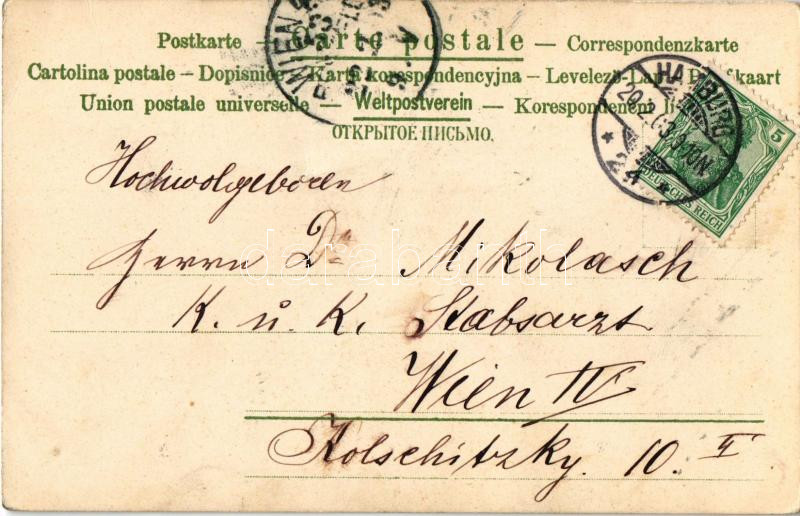 Postkarte — Carte postale — Correspondenzkarte
Cartolina postale — Dopisnice — Karta korespondencyjna — Levelező-Lap —
Union postale universelle — Weltpostverein — Korespondenční
ОТКРЫТОЕ ПИСЬМО.
WIEN
HAMBURG
20.2.03. 9-10N
* 2 4 *
5
DEUTSCHES REICH
Hochwolgeboren
Herrn Dr Mikolasch
K. u. K. Stabsarzt
Wien IV
Kolschitzky. 10. II
darabanth